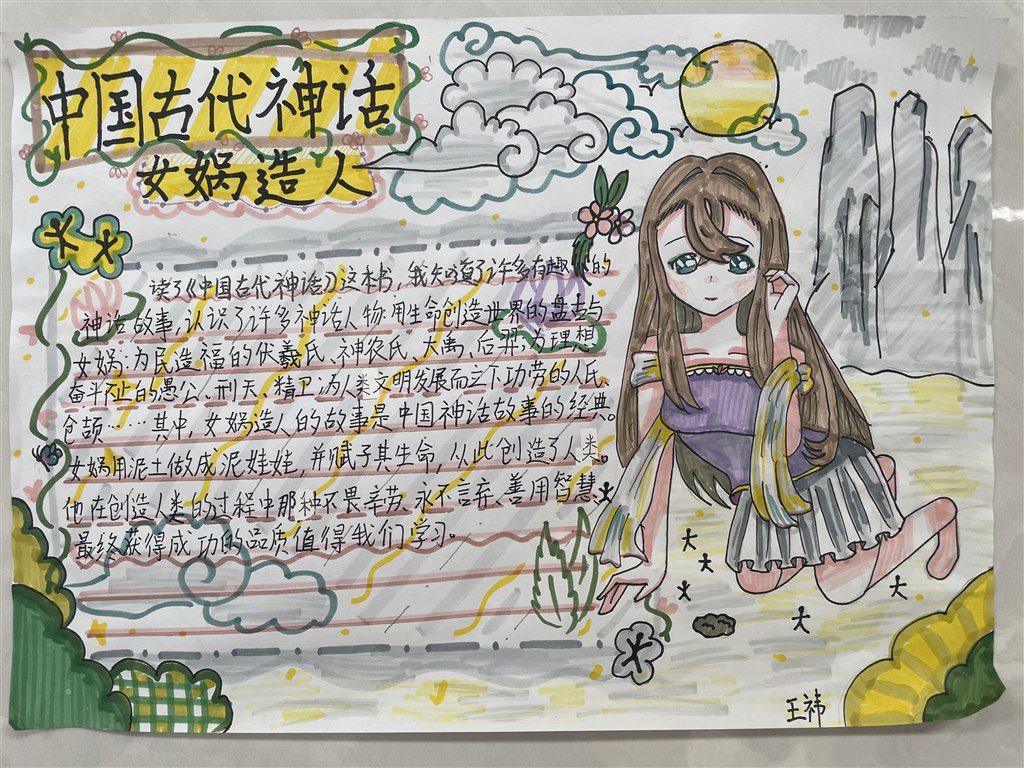 中国古代神话
女娲造人
读了《中国古代神话》这本书，我知道了许多有趣的
神话故事，认识了许多神话人物：用生命创造世界的盘古与
女娲；为民造福的伏羲氏、神农氏、大禹、后羿；为理想
奋斗不止的愚公、刑天、精卫；为人类文明发展而立下功劳的人氏、
仓颉……其中，女娲造人的故事是中国神话故事的经典。
女娲用泥土做成泥娃娃，并赋予其生命，从此创造了人类。
他在创造人类的过程中那种不畏辛劳、永不言弃、善用智慧、
最终获得成功的品质值得我们学习。
王祎